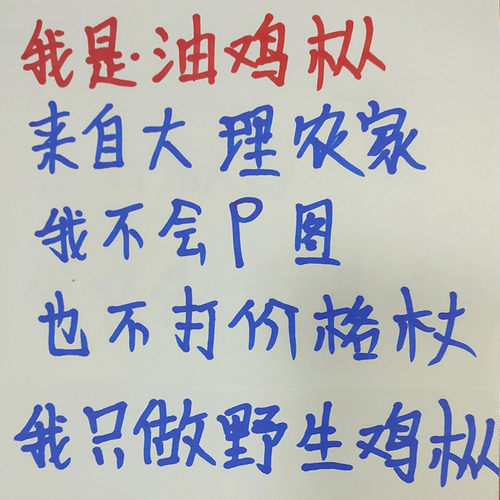 我是油鸡枞
来自大理农家
我不会P图
也不打价格杖
我只做野生鸡枞